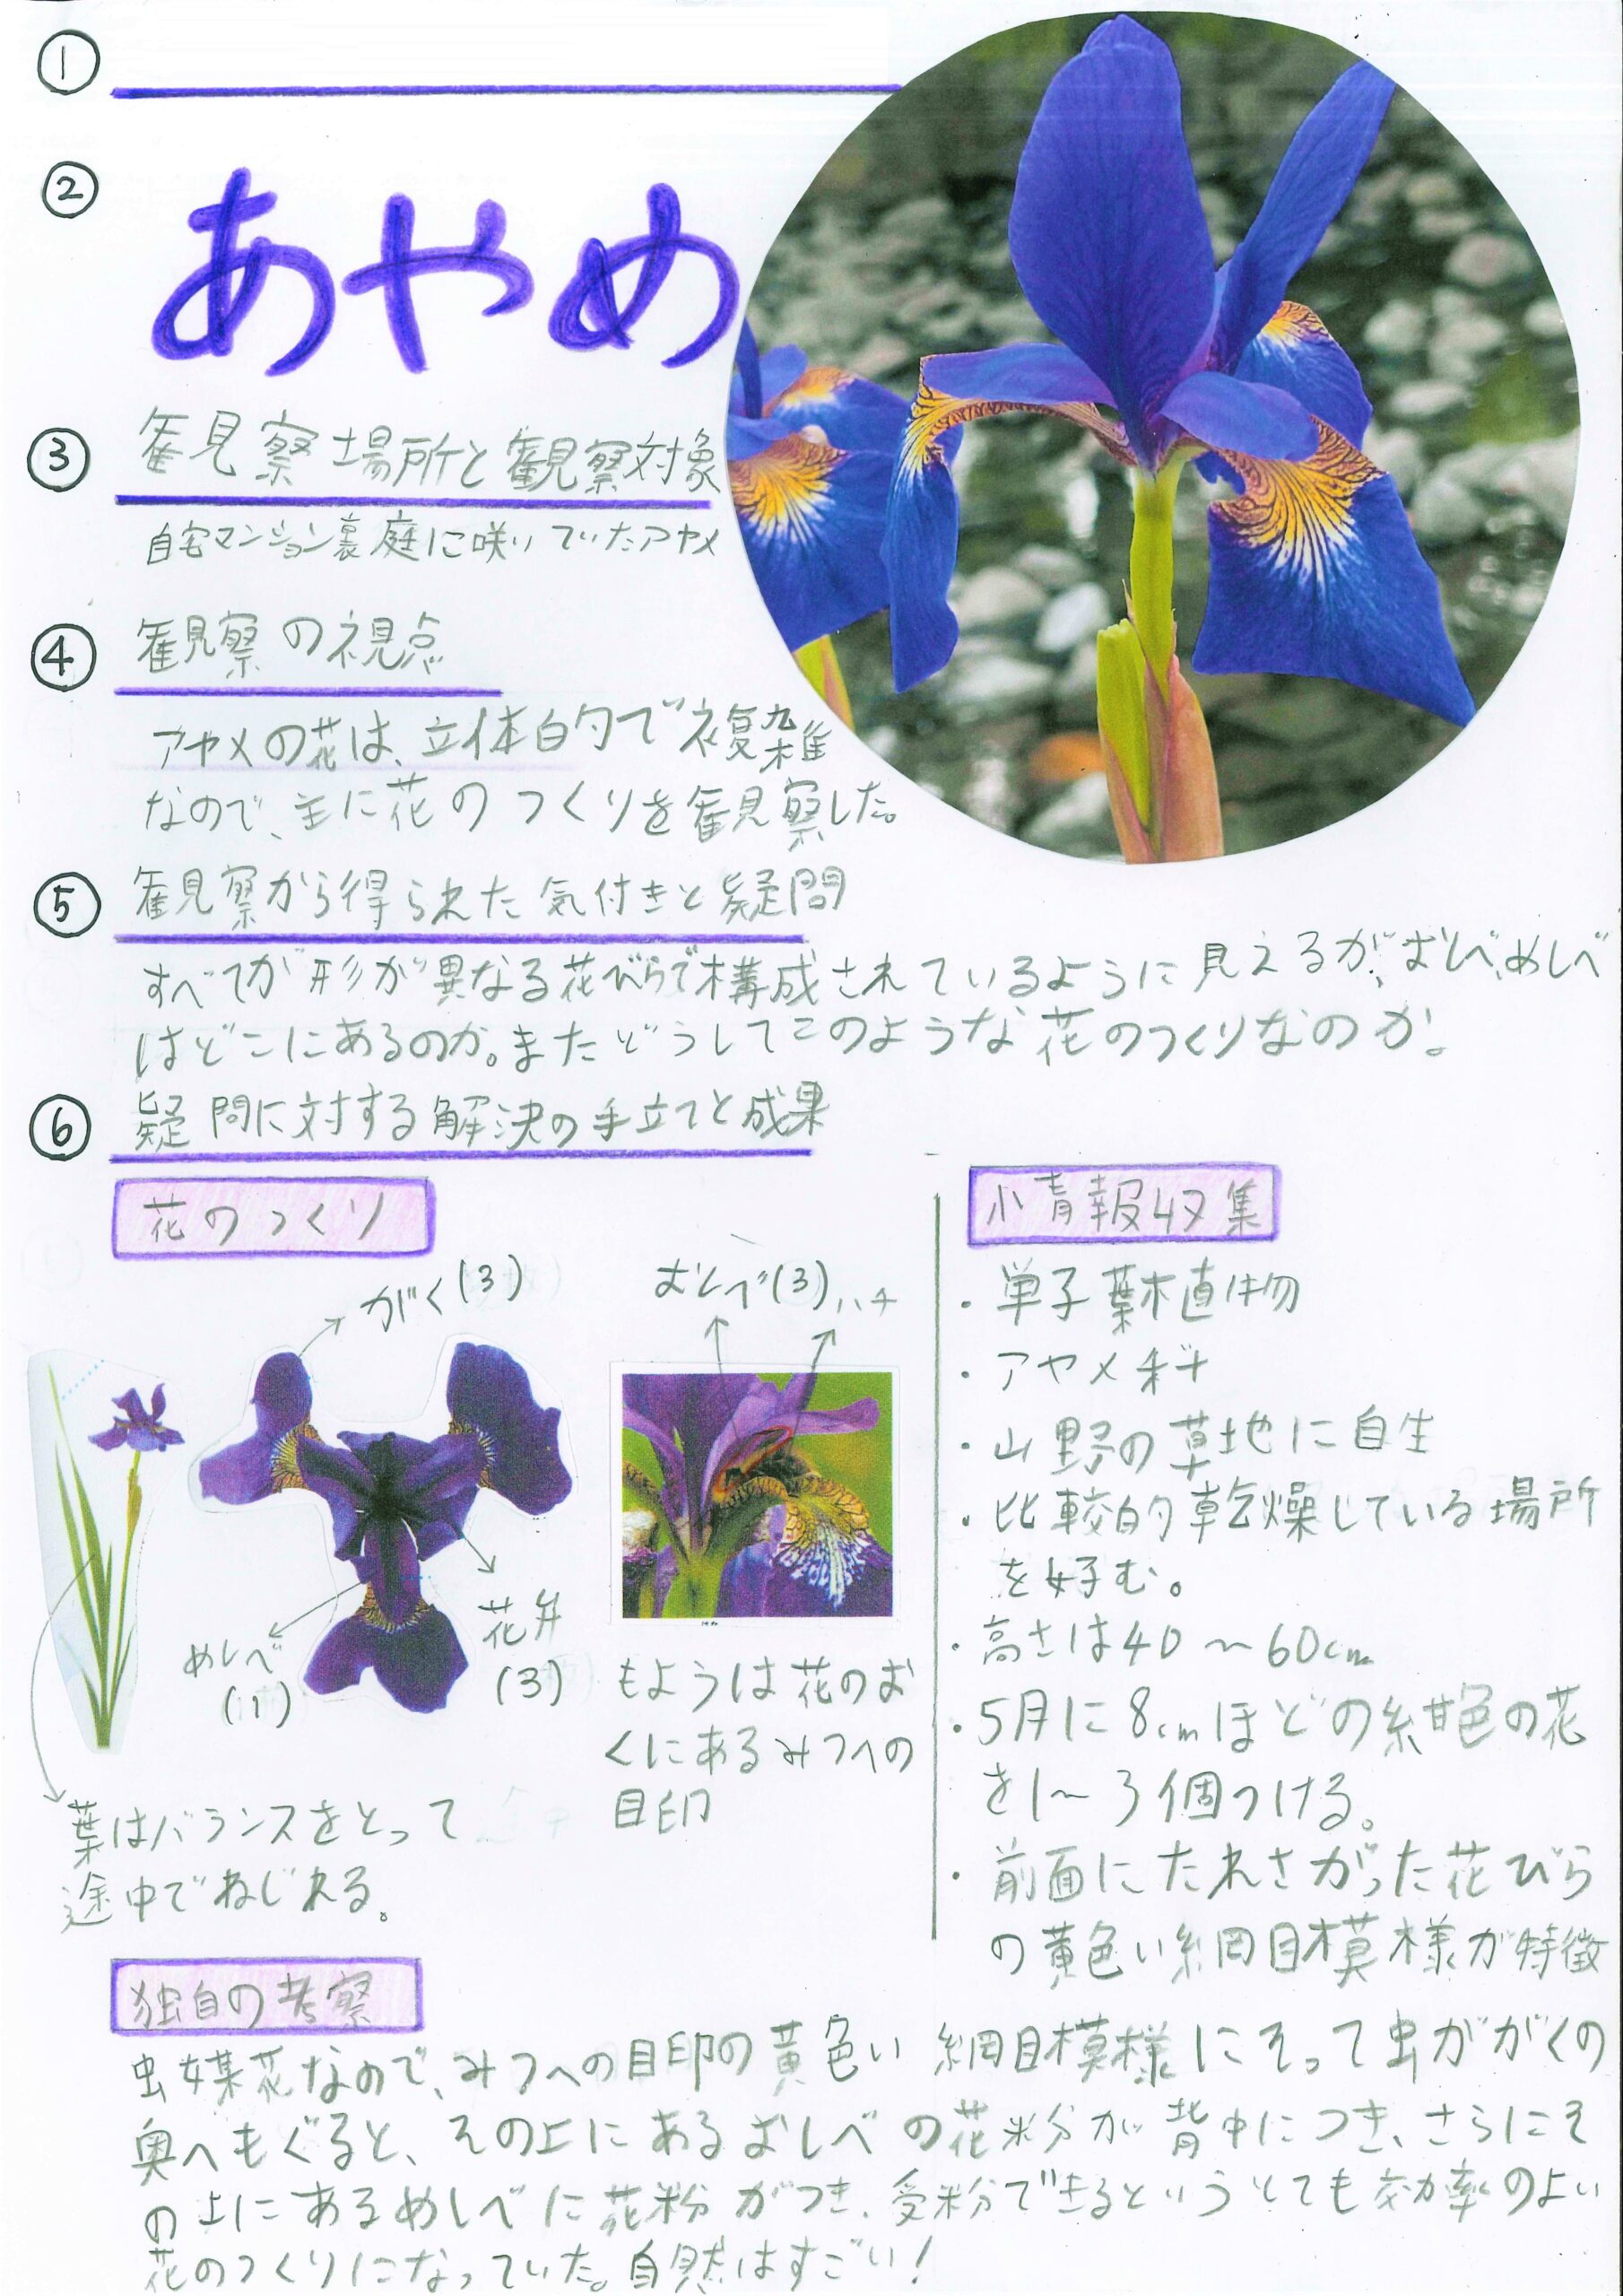 ①
② あやめ
③ 観察場所と観察対象
自宅マンション裏庭に咲いていたアヤメ
④ 観察の視点
アヤメの花は、立体的で複雑
なので、主に花のつくりを観察した。
⑤ 観察から得られた気付きと疑問
すべてが形が異なる花びらで構成されているように見えるが、おしべ、めしべ
はどこにあるのか。またどうしてこのような花のつくりなのか。
⑥ 疑問に対する解決の手立てと成果
花のつくり
がく(3)
おしべ(3)
ハチ
めしべ
(1)
花弁
(3)
葉はバランスをとって
途中でねじれる。
もようは花のお
くにあるみつへの
目印
情報収集
・単子葉植物
・アヤメ科
・山野の草地に自生
・比較的乾燥している場所
を好む。
・高さは40〜60cm
・5月に8cmほどの紺色の花
を1〜3個つける。
・前面にたれさがった花びら
の黄色い網目模様が特徴
独自の考察
虫媒花なので、みつへの目印の黄色い網目模様にそって虫ががくの
奥へもぐると、その上にあるおしべの花粉が背中につき、さらにそ
の上にあるめしべに花粉がつき、受粉できるというとても効率のよい
花のつくりになっていた。自然はすごい！